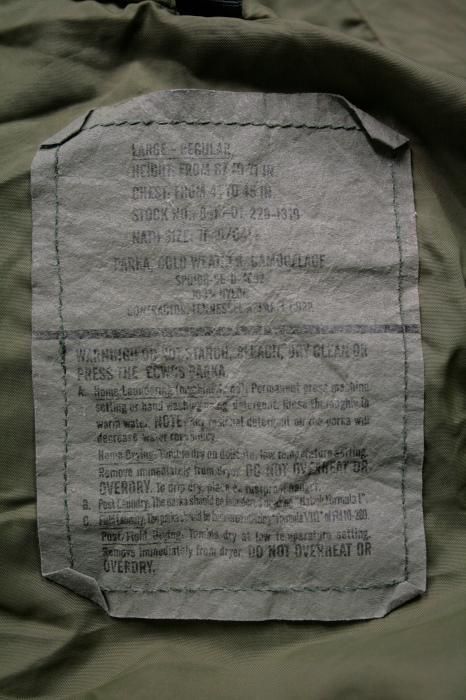 LARGE - REGULAR
HEIGHT: FROM 67 TO 71 IN
CHEST: FROM 41 TO 45 IN
STOCK NO.: 8415-01-228-1319
NATO SIZE:
PARKA, COLD WEATHER, CAMOUFLAGE
100% NYLON
CONTRACTOR, TENNESSEE APPAREL CORP.
WARNING! DO NOT STARCH, BLEACH, DRY CLEAN OR
PRESS THE "ECWCS" PARKA
A. Home Laundering Permanent press machine
setting or hand wash using detergent. Rinse thoroughly in
warm water. NOTE: Any residual detergent on the parka will
decrease water repellency.
Home Drying: Tumble dry on delicate, low temperature setting.
Remove immediately from dryer. DO NOT OVERHEAT OR
OVERDRY. To drip dry, place on rustproof hanger.
B. Post Laundry. The parka should be laundered using "Formula I".
C. Field Laundry. The parka should be laundered using "Formula VIII" of FM 10-280.
Post/Field Drying: Tumble dry at low temperature setting.
Remove immediately from dryer. DO NOT OVERHEAT OR
OVERDRY.